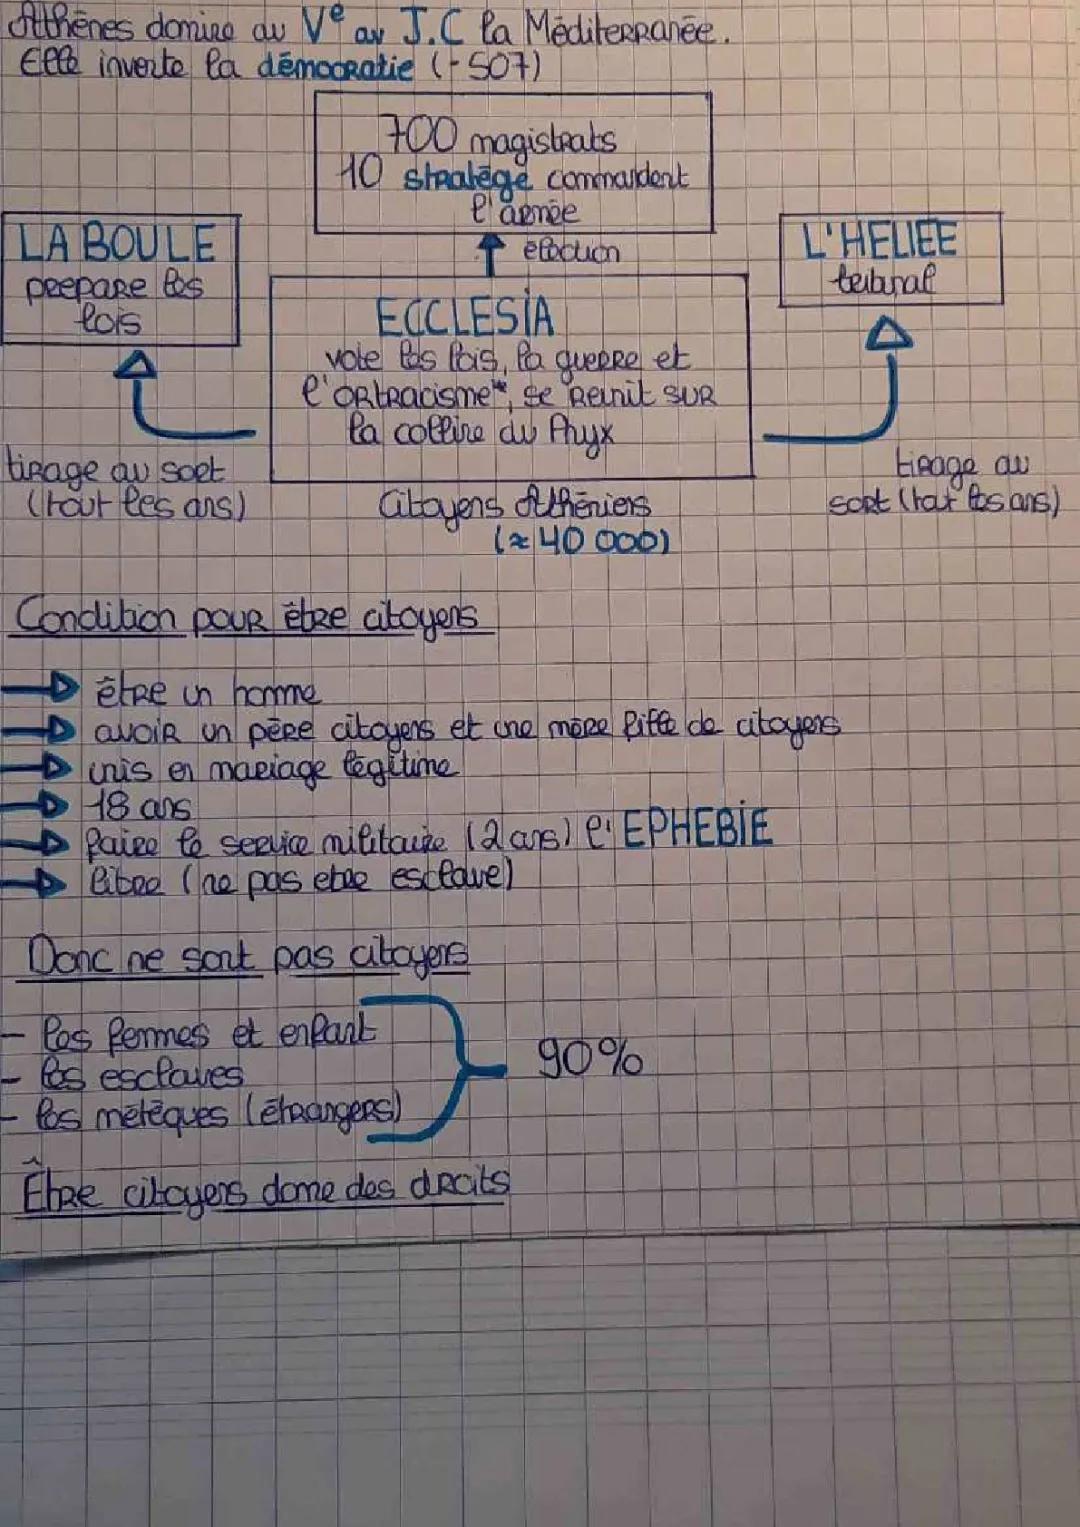 Athènes domine au Ve av J.C la Méditerranée.
Elle invente la démocratie (-507)
700 magistrats
10 stratège commandent
l'armée
élection
LA BOULE
prépare les
lois
L'HELIEE
tribunal
ECCLESIA
vote les lois, la guerre et
l'ortracisme*, se reinit sur
la colline du Pnyx
tirage au sort
(tout les ans)
tirage au
sort (tout les ans)
Citoyens Athéniens
(≈ 40 000)
Condition pour être citoyens
être un homme
avoir un père citoyens et une mère fille de citoyens
unis en mariage légitime
18 ans
faire le service militaire (2 ans) l'EPHEBIE
libre (ne pas etre esclave)
Donc ne sont pas citoyens
- les femmes et enfant
- les esclaves
- les métèques (étrangers)
90%
Être citoyens donne des droits